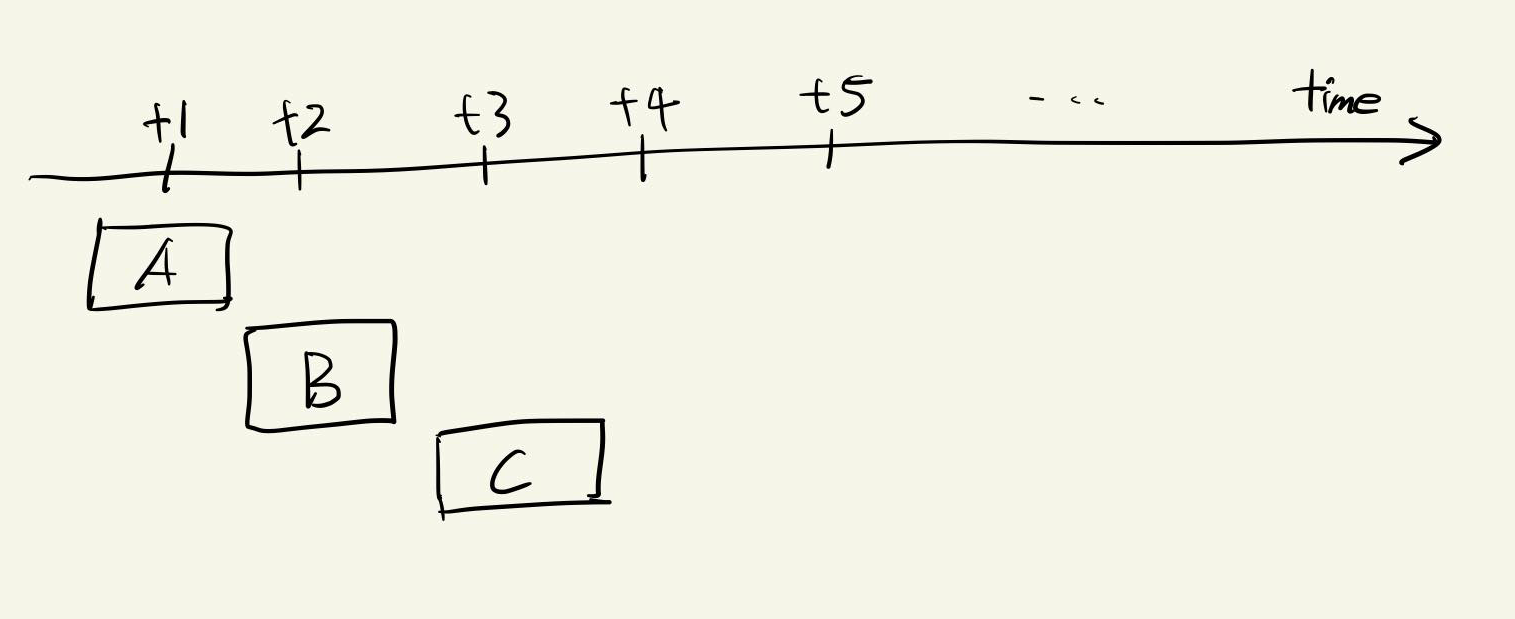 t1 t2 t3 t4 t5 ... time
A
B
C